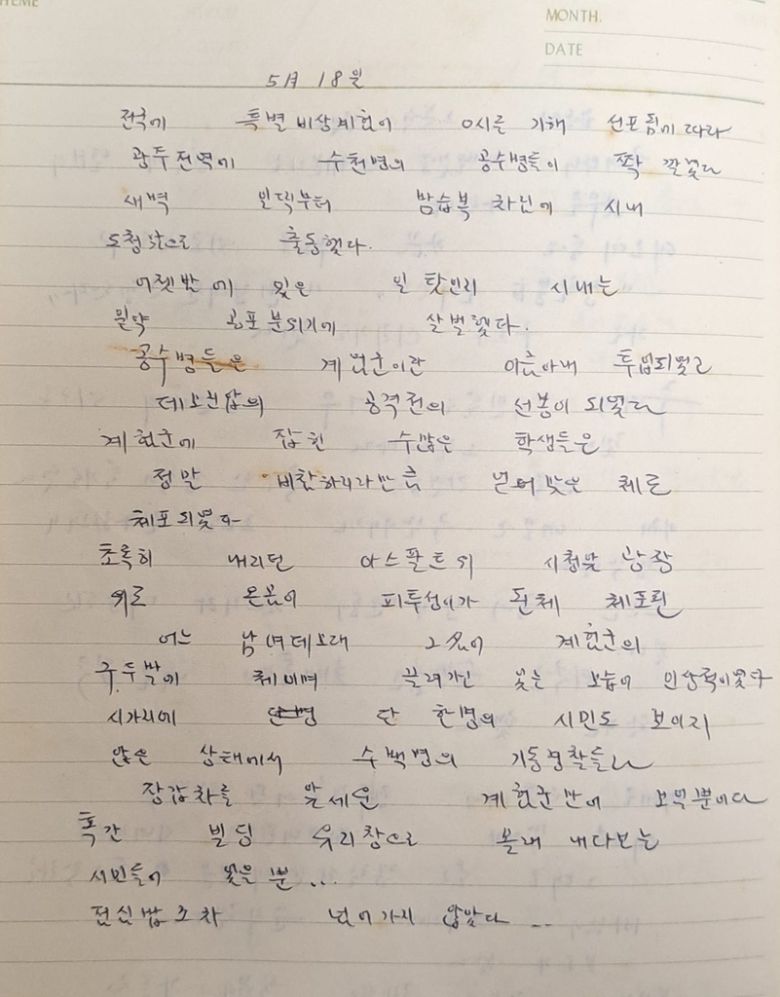 MONTH.
DATE
5月 18일
전국에 특별비상계엄이 0시를 기해 선포됨에 따라
광주전역에 수천명의 공수병들이 쫙 깔렸고
새벽 부터 차림에 시내
도청앞으로 출동했다.
어젯밤에 있은 일 탓인지 시내는
공포 분위기에 살벌했다.
공수병들은 계엄군이란 이름아래 투입되었고
데모진압의 공격전의 선봉이 되었고
계엄군에 잡힌 수많은 학생들은
정말 비참하리라만큼 얻어맞은 체로
체포되었다
내리던 아스팔트의 시청앞 광장
위로 온몸이 피투성이가 된체 체포된
어느 남녀데모대 2名이 계엄군의
구두박에 체이며 끌려가 있는 모습이 인상적이었다
시가지에 단 한명의 시민도 보이지
않은 상태에서 수백명의 기동경찰들과
장갑차를 앞세운 계엄군만이 보일뿐이다
빌딩 유리창으로 몰래 내다보는
시민들이 있을 뿐...
점심밥조차 넘어가지 않았다...